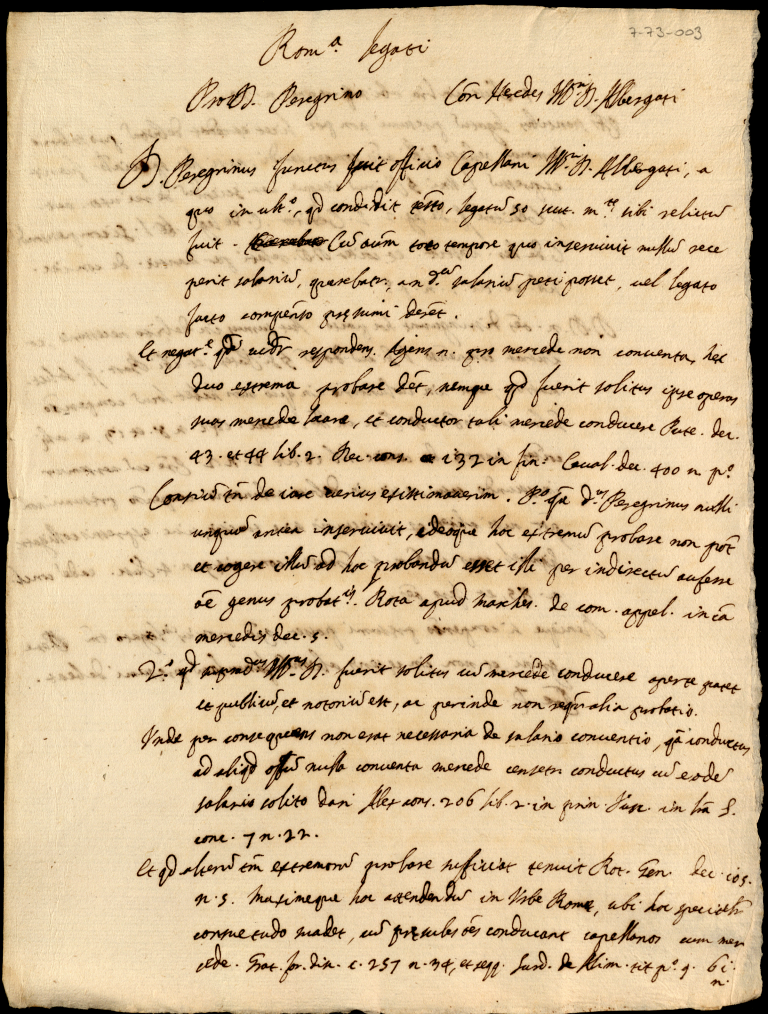 7-73-003
Rom.ª legati
Pro D. Peregrino Con Heredes Ill.mi D. Albergati
D. Peregrinus functus fuit officio Capellani Ill.mi D. Albergati, a
quo in ult.º, qd condidit testo, legatū 50 scut. m.tæ sibi relictū
fuit. Cū aūm toto tempore quo inseruiuit nullū rece
perit salariū, quærebatr, an d.ū salariū peti posset, uel legato
facto compensō præsumi deret.
Et negat.e qdē uidr respondens. Agens n. pro mercede non conuenta, hæc
duo extrema probare dēt, nempe qd fuerit solitus ipse operas
suas mercede locare, et conductor tali mercede conducere Pute. dec.
43. et 44 lib. 2. Rec. cons. 132 in fin. Caual. dec. 400 n. pº
Contriū tn de iure uerius existimauerim. P.º qa d.us Peregrinus nulli
unquā antea inseruiuit, adeoque hoc extremū probare non pōt
et cogere illū ad hoc probandū esset illi per indirectū auferre
oē genus probat.is. Rota apud Marches. de com. appel. in cā
mercedis dec. 5.
2.º qd Ill.mus D. fuerit solitus cū mercede conducere aperte patet
et publicū, et notoriū est, ac perinde non reqr alia probatio.
Unde per consequens non erat necessaria de salario conuentio, qa conductus
ad aliqd offū nulla conuenta mercede censetr conductus cū eodē
salario solito dari Alex cons. 206 lib. 2. in prin. in
conc. 7 n. 22.
Et qd alterū tm extremorū probare sufficiat tenuit Rot. Gen. dec. 105.
n. 5. Maximeque hoc attendendū in Urbe Romæ, ubi hoc
consuetudo suadet, cū præsules oēs conducant capellanos cum mer
cede. Grat. for. disc. c. 257 n. 34, et seqq. Surd. de Alim. tit pº q. 61.
n.